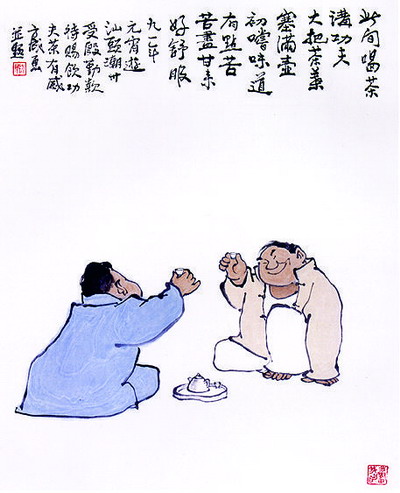 此间喝茶
讲功夫
大把茶葉
塞滿壺
初嚐味道
有點苦
苦盡甘来
好舒服
九一年
元宵遊
汕頭潮州
受殷勤款
待赐飲功
夫茶有感
方成画
並題